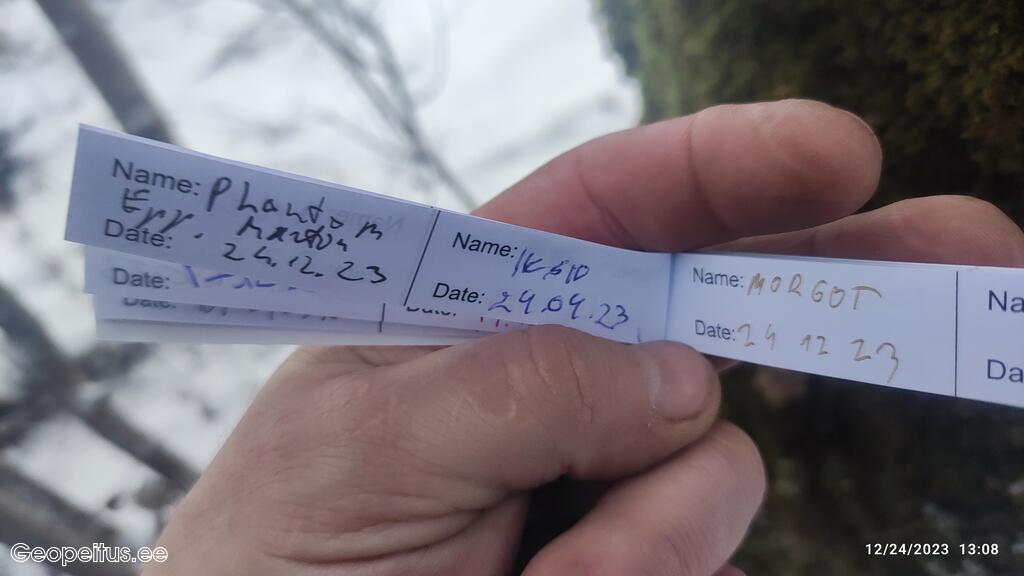 Name: Phantom
Err. Martin
Date: 24.12.23
Name:
Date: 29.09.23
Name: MORGOT
Date: 24 12 23
Na
Da
Date:
Date:
Date:
Geopeitus.ee
12/24/2023 13:08